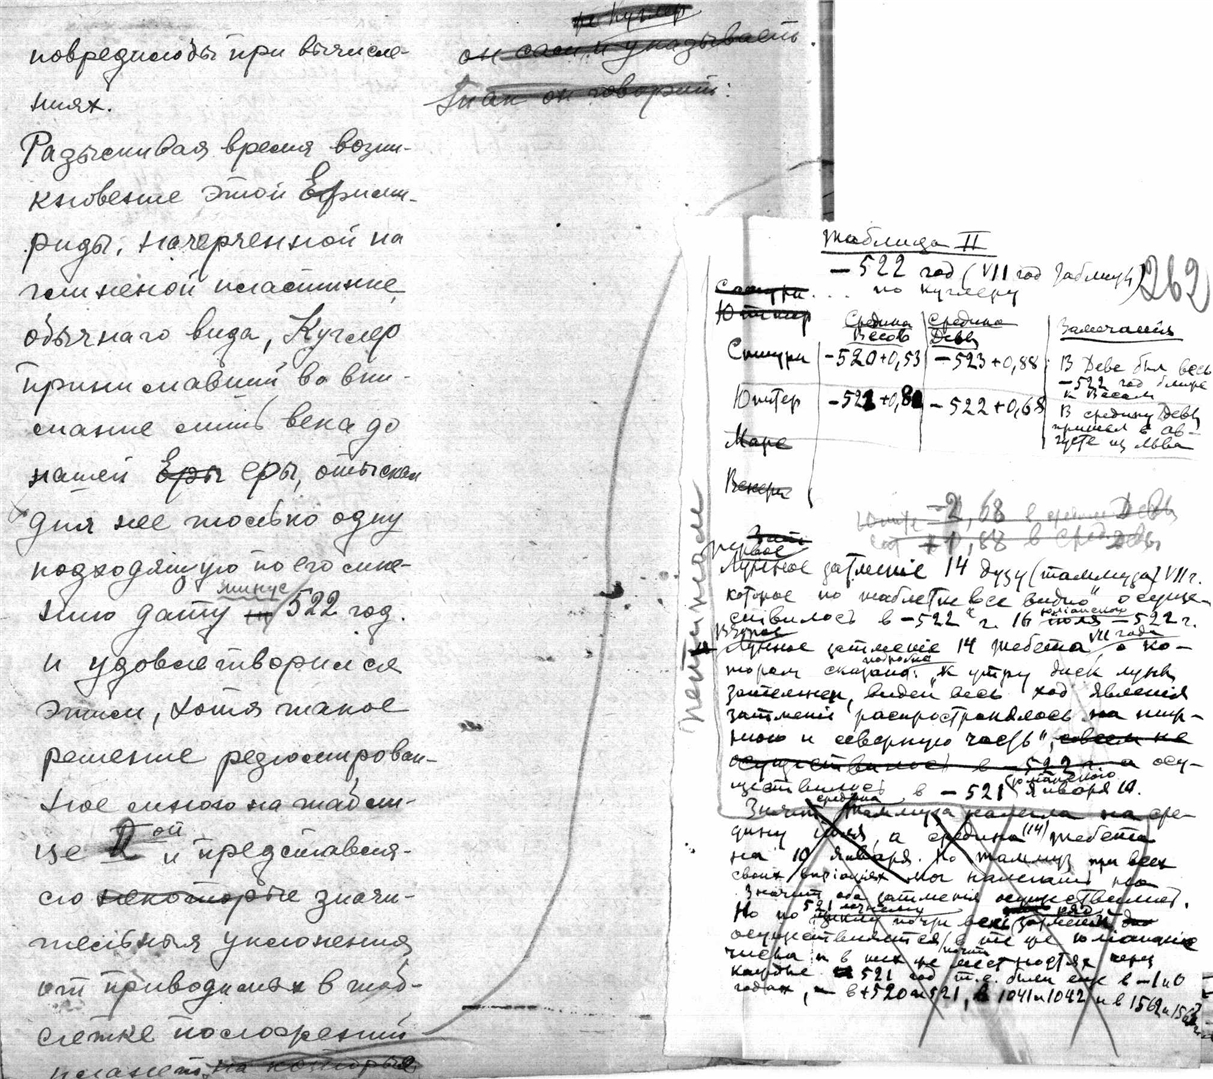 повредило бы при вычисле-
ниях.
Разыскивая время возни-
кновение этой Ефеме-
риды, начерченной на
глиненой пластинке
обычнаго вида, Куглер
принимавший во вни-
мание лишь века до
нашей Еры еры, отыскал
для нее только одну
подходящую по его мне-
нию дату минус 522 год.
и удовлетворился
этим, хотя такое
решение резюмирован-
ное много на табли-
це II ой и представля-
ло некоторые значи-
тельныя уклонения
от приводимых в таб-
летке положений
планет, на которые
же Куглер
он сам и указывает.
Так он говорит:
Таблица II
262
– 522 год (VII год Таблицы)
Сатурн . . . . по Куглеру
Юпитер
Средина Весов
Средина Девы
Замечания
Сатурн –520+0,53 –523+0,88
В Деве был весь –522 год ближе к Весам
Юпитер –522+0,68
В средину Девы пришел в ав-
густе из Льва
Марс
Венера
–2,68 в средин Девы
+1,88 в сред Девы
петитом
первое
Лунное затмение 14 дузу (таммуза) VII г.
которое по таблетке "все видно" осуще-
ствилось в –522 г. 16 июля юлианского –522 г.
Второе
Лунное затмение 14 тебета VII года о ко-
тором сказано: „К утру диск луны
затемнен, виден весь ход явления
затмение распространялось на юж-
ную и северную часть", совсем не
осуществилось в –522 г. а осу-
ществилось в –521 юлианского января 10.
Значит средина Таммуза попала на сре-
дину июля, а средина (14) тебета
на 10 января. Но таммуз при всех
своих
Значит оба затмения осуществимы.
Но по 521 летнему циклу почти все затмения
осуществляются в те же юлианские
числа и в тех же местностях через
каждые 521 год т.е. были еще в –1 и 0
годах, в +520 и 521, в 1041 и 1042 и в 1562 и 1563